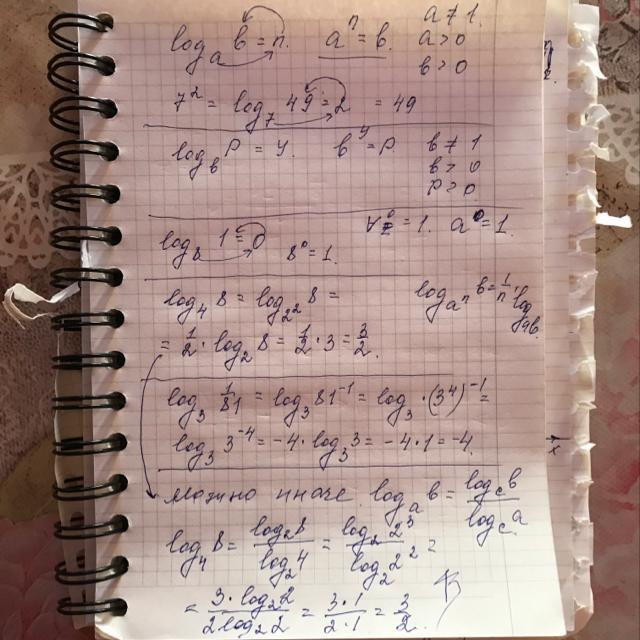 log_a b = n. a^n = b. a ≠ 1.
a > 0
b > 0
7^2 = log_7 49 = 2 = 49
log_b P = y. b^y = P b ≠ 1
b > 0
P > 0
log_8 1 = 0 8^0 = 1. = 1. a^0 = 1.
log_4 8 = log_{2^2} 8 = log_{a^n} b = 1/n · log_a b.
= 1/2 · log_2 8 = 1/2 · 3 = 3/2.
log_3 1/81 = log_3 81^{-1} = log_3 · (3^4)^{-1} =
log_3 3^{-4} = -4 · log_3 3 = -4 · 1 = -4.
Можно иначе. log_a b = log_c b / log_c a
log_4 8 = log_2 8 / log_2 4 = log_2 2^3 / log_2 2^2 =
= 3 · log_2 2 / 2 log_2 2 = 3 · 1 / 2 · 1 = 3/2.
x